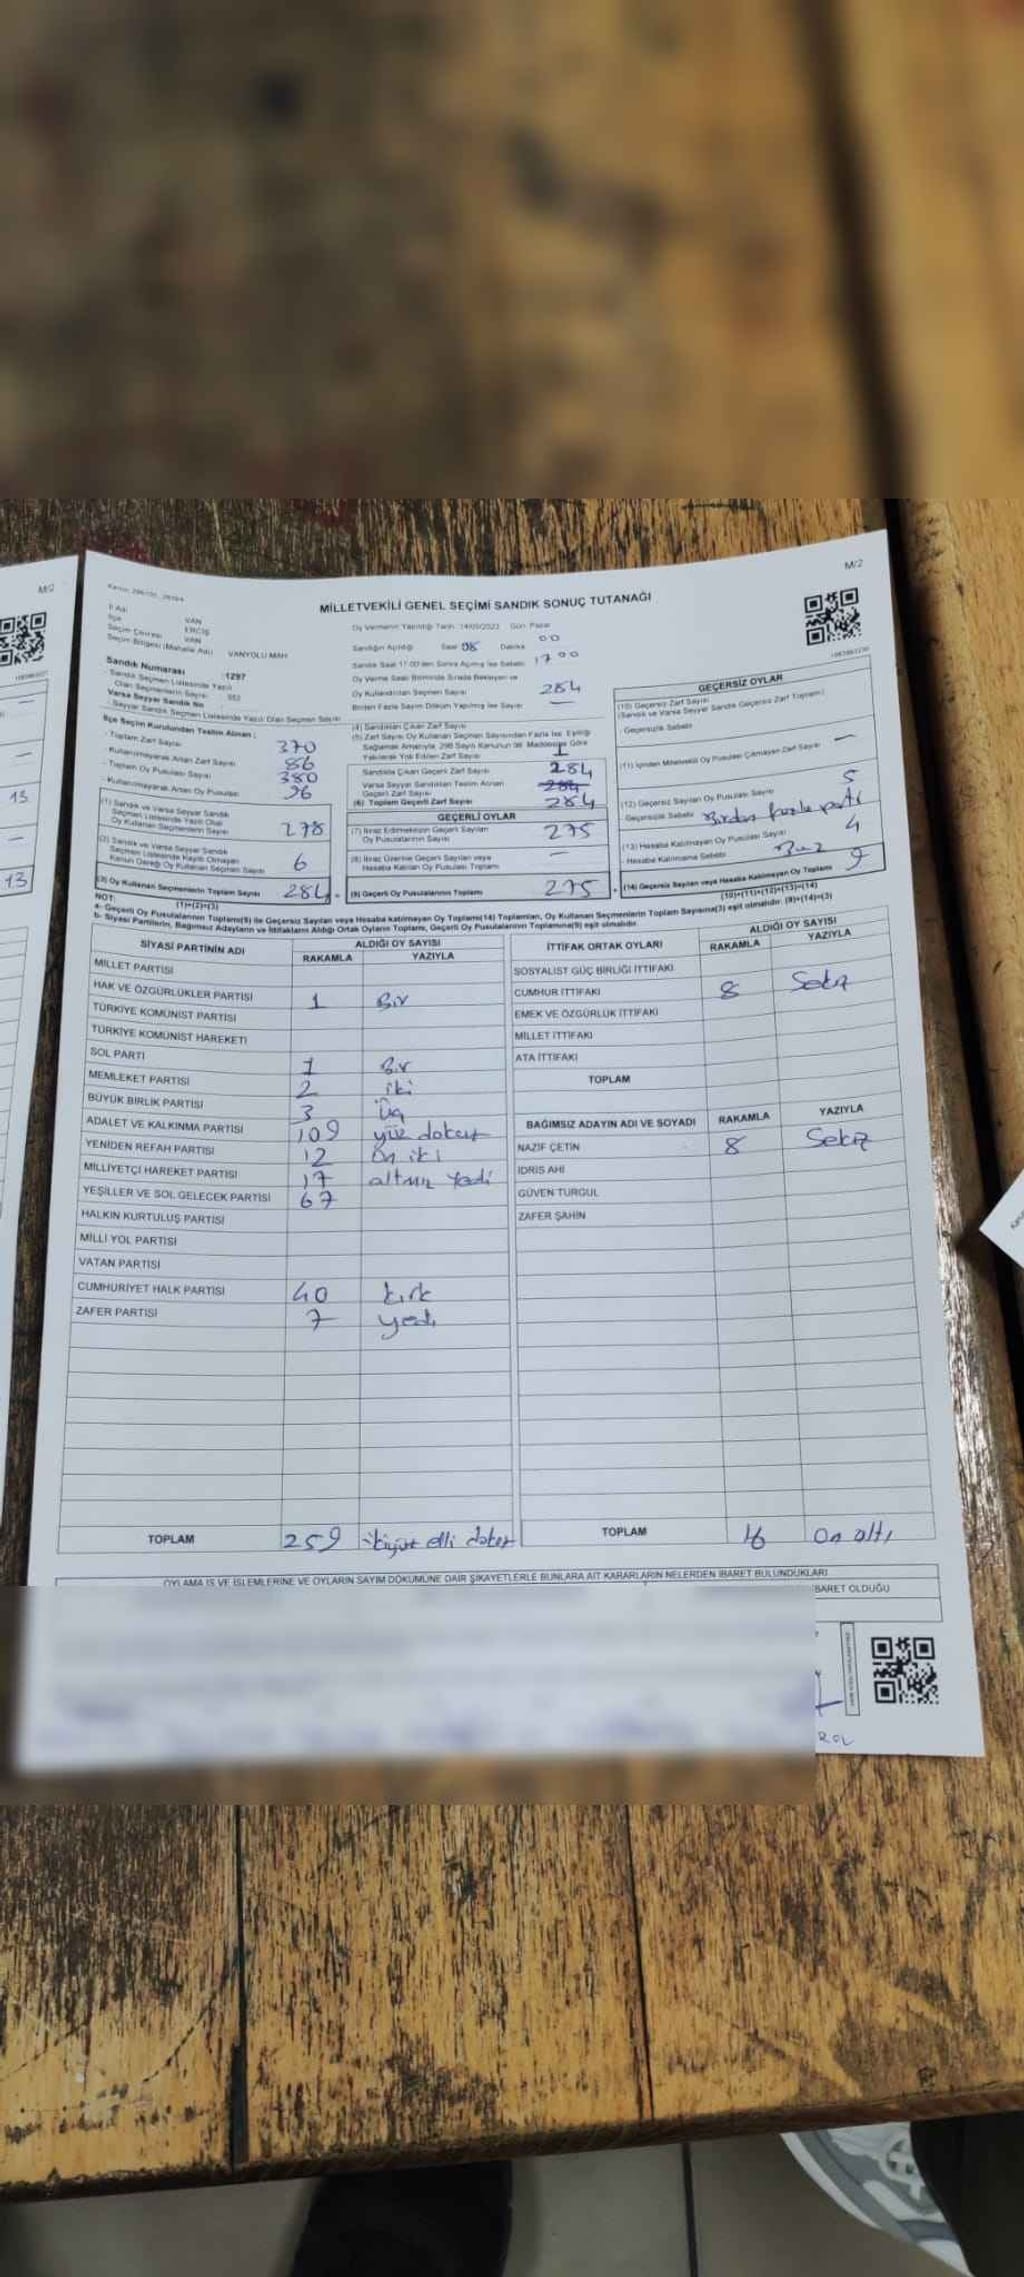 M/2
M/2
MİLLETVEKİLİ GENEL SEÇİMİ SANDIK SONUÇ TUTANAĞI
İl Adı VAN
İlçe ERCİŞ
Seçim Çevresi VAN
Seçim Bölgesi (Mahalle Adı) VANYOLU MAH
Oy Vermenin Yapıldığı Tarih: 14/05/2023 Gün: Pazar
Sandığın Açıldığı Saat 08 Dakika 00
Sandık Saat 17:00'den Sonra Açılmış İse Sebebi 1700
Sandık Numarası :1297
Sandık Seçmen Listesinde Yazılı
Olan Seçmenlerin Sayısı
Varsa Seyyar Sandık No
Seyyar Sandık Seçmen Listesinde Yazılı Olan Seçmen Sayısı
Oy Verme Saati Bitiminde Sırada Bekleyen ve
Oy Kullandırılan Seçmen Sayısı 284
Birden Fazla Sayım Döküm Yapılmış İse Sayısı —
İlçe Seçim Kurulundan Teslim Alınan :
- Toplam Zarf Sayısı 370
- Kullanılmayarak Artan Zarf Sayısı 86
- Toplam Oy Pusulası Sayısı 380
- Kullanılmayarak Artan Oy Pusulası 96
(1) Sandık ve Varsa Seyyar Sandık
Seçmen Listesinde Yazılı Olup
Oy Kullanan Seçmenlerin Sayısı 278
(2) Sandık ve Varsa Seyyar Sandık
Seçmen Listesinde Kayıtlı Olmayan
Kanun Gereği Oy Kullanan Seçmenlerin Sayısı 6
(3) Oy Kullanan Seçmenlerin Toplam Sayısı 284
(1)+(2)=(3)
(4) Sandıktan Çıkan Zarf Sayısı
(5) Zarf Sayısı Oy Kullanan Seçmen Sayısından Fazla İse, Eşitliği
Sağlamak Amacıyla, 298 Sayılı Kanunun 98. Maddesine Göre
Yakılarak Yok Edilen Zarf Sayısı 1
Sandıkta Çıkan Geçerli Zarf Sayısı 284
Varsa Seyyar Sandıktan Teslim Alınan
Geçerli Zarf Sayısı 284
(6) Toplam Geçerli Zarf Sayısı 284
GEÇERLİ OYLAR
(7) İtiraz Edilmeksizin Geçerli Sayılan
Oy Pusulalarının Sayısı 275
(8) İtiraz Üzerine Geçerli Sayılan veya
Hesaba Katılan Oy Pusulası Toplamı —
(9) Geçerli Oy Pusulalarının Toplamı 275
GEÇERSİZ OYLAR
(10) Geçersiz Zarf Sayısı
(Sandık ve Varsa Seyyar Sandık Geçersiz Zarf Toplamı)
Geçersizlik Sebebi
(11) İçinden Milletvekili Oy Pusulası Çıkmayan Zarf Sayısı —
(12) Geçersiz Sayılan Oy Pusulası Sayısı 5
Geçersizlik Sebebi Birden fazla parti
(13) Hesaba Katılmayan Oy Pusulası Sayısı 4
Hesaba Katılmama Sebebi
(14) Geçersiz Sayılan veya Hesaba Katılmayan Oy Toplamı 9
(10)+(11)+(12)+(13)=(14)
NOT:
a- Geçerli Oy Pusulalarının Toplamı(9) ile Geçersiz Sayılan veya Hesaba katılmayan Oy Toplamı(14) Toplamları, Oy Kullanan Seçmenlerin Toplam Sayısına(3) eşit olmalıdır. (9)+(14)=(3)
b- Siyasi Partilerin, Bağımsız Adayların ve İttifakların Aldığı Ortak Oyların Toplamı, Geçerli Oy Pusulalarının Toplamına(9) eşit olmalıdır.
SİYASİ PARTİNİN ADI ALDIĞI OY SAYISI
RAKAMLA YAZIYLA
MİLLET PARTİSİ
HAK VE ÖZGÜRLÜKLER PARTİSİ 1 Bir
TÜRKİYE KOMÜNİST PARTİSİ
TÜRKİYE KOMÜNİST HAREKETİ
SOL PARTİ 1 Bir
MEMLEKET PARTİSİ 2 iki
BÜYÜK BİRLİK PARTİSİ 3 Üç
ADALET VE KALKINMA PARTİSİ 109 yüz dokuz
YENİDEN REFAH PARTİSİ 12 on iki
MİLLİYETÇİ HAREKET PARTİSİ 17 altmış yedi
YEŞİLLER VE SOL GELECEK PARTİSİ 67
HALKIN KURTULUŞ PARTİSİ
MİLLİ YOL PARTİSİ
VATAN PARTİSİ
CUMHURİYET HALK PARTİSİ 40 kırk
ZAFER PARTİSİ 7 yedi
TOPLAM 259 ikiyüz elli dokuz
İTTİFAK ORTAK OYLARI ALDIĞI OY SAYISI
RAKAMLA YAZIYLA
SOSYALİST GÜÇ BİRLİĞİ İTTİFAKI
CUMHUR İTTİFAKI 8 Sekiz
EMEK VE ÖZGÜRLÜK İTTİFAKI
MİLLET İTTİFAKI
ATA İTTİFAKI
TOPLAM
BAĞIMSIZ ADAYIN ADI VE SOYADI RAKAMLA YAZIYLA
NAZİF ÇETİN 8 Sekiz
İDRİS AHİ
GÜVEN TURGUL
ZAFER ŞAHİN
TOPLAM 16 On altı
OYLAMA İŞ VE İŞLEMLERİNE VE OYLARIN SAYIM DÖKÜMÜNE DAİR ŞİKAYETLERLE BUNLARA AİT KARARLARIN NELERDEN İBARET BULUNDUKLARI
BARET OLDUĞU
ROL
13
13